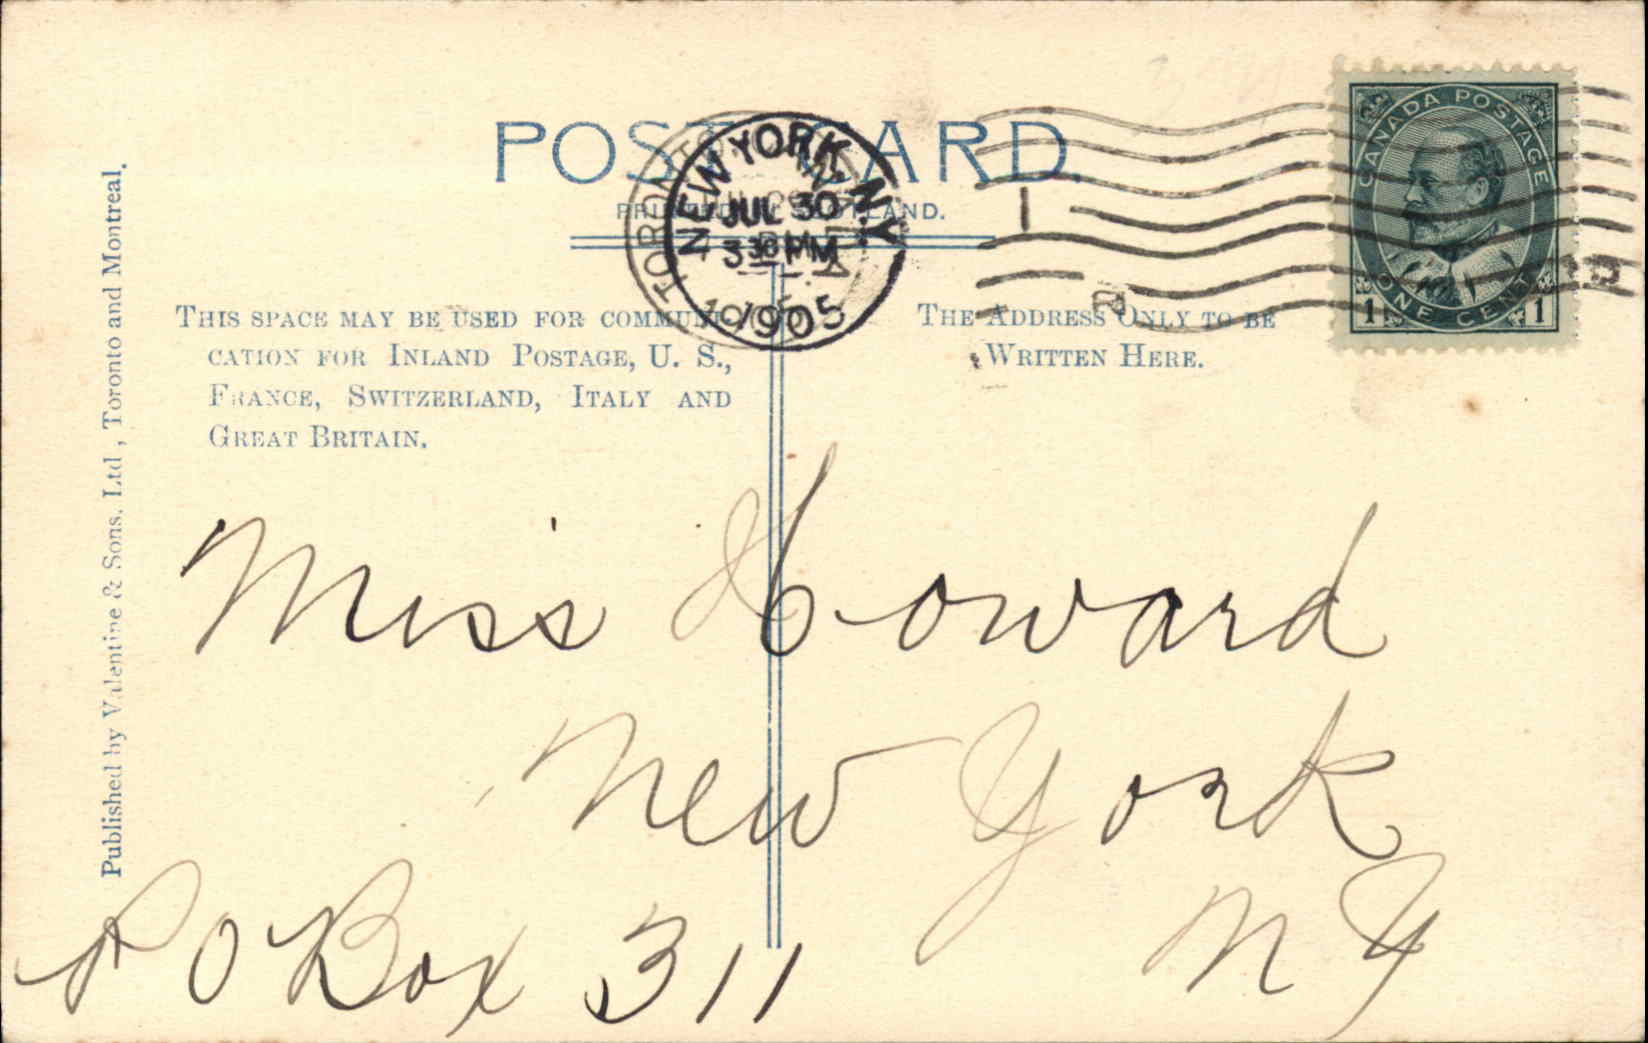 POST CARD
PRINTED IN SCOTLAND.
TORONTO
NEW YORK, N.Y.
JUL 30
3 30 PM
1905
CANADA POSTAGE
1 ONE CENT 1
THIS SPACE MAY BE USED FOR COMMUNI-
CATION FOR INLAND POSTAGE, U. S.,
FRANCE, SWITZERLAND, ITALY AND
GREAT BRITAIN.
THE ADDRESS ONLY TO BE
WRITTEN HERE.
Published by Valentine & Sons, Ltd, Toronto and Montreal.
Miss Howard
New York
P O Box 311 N Y